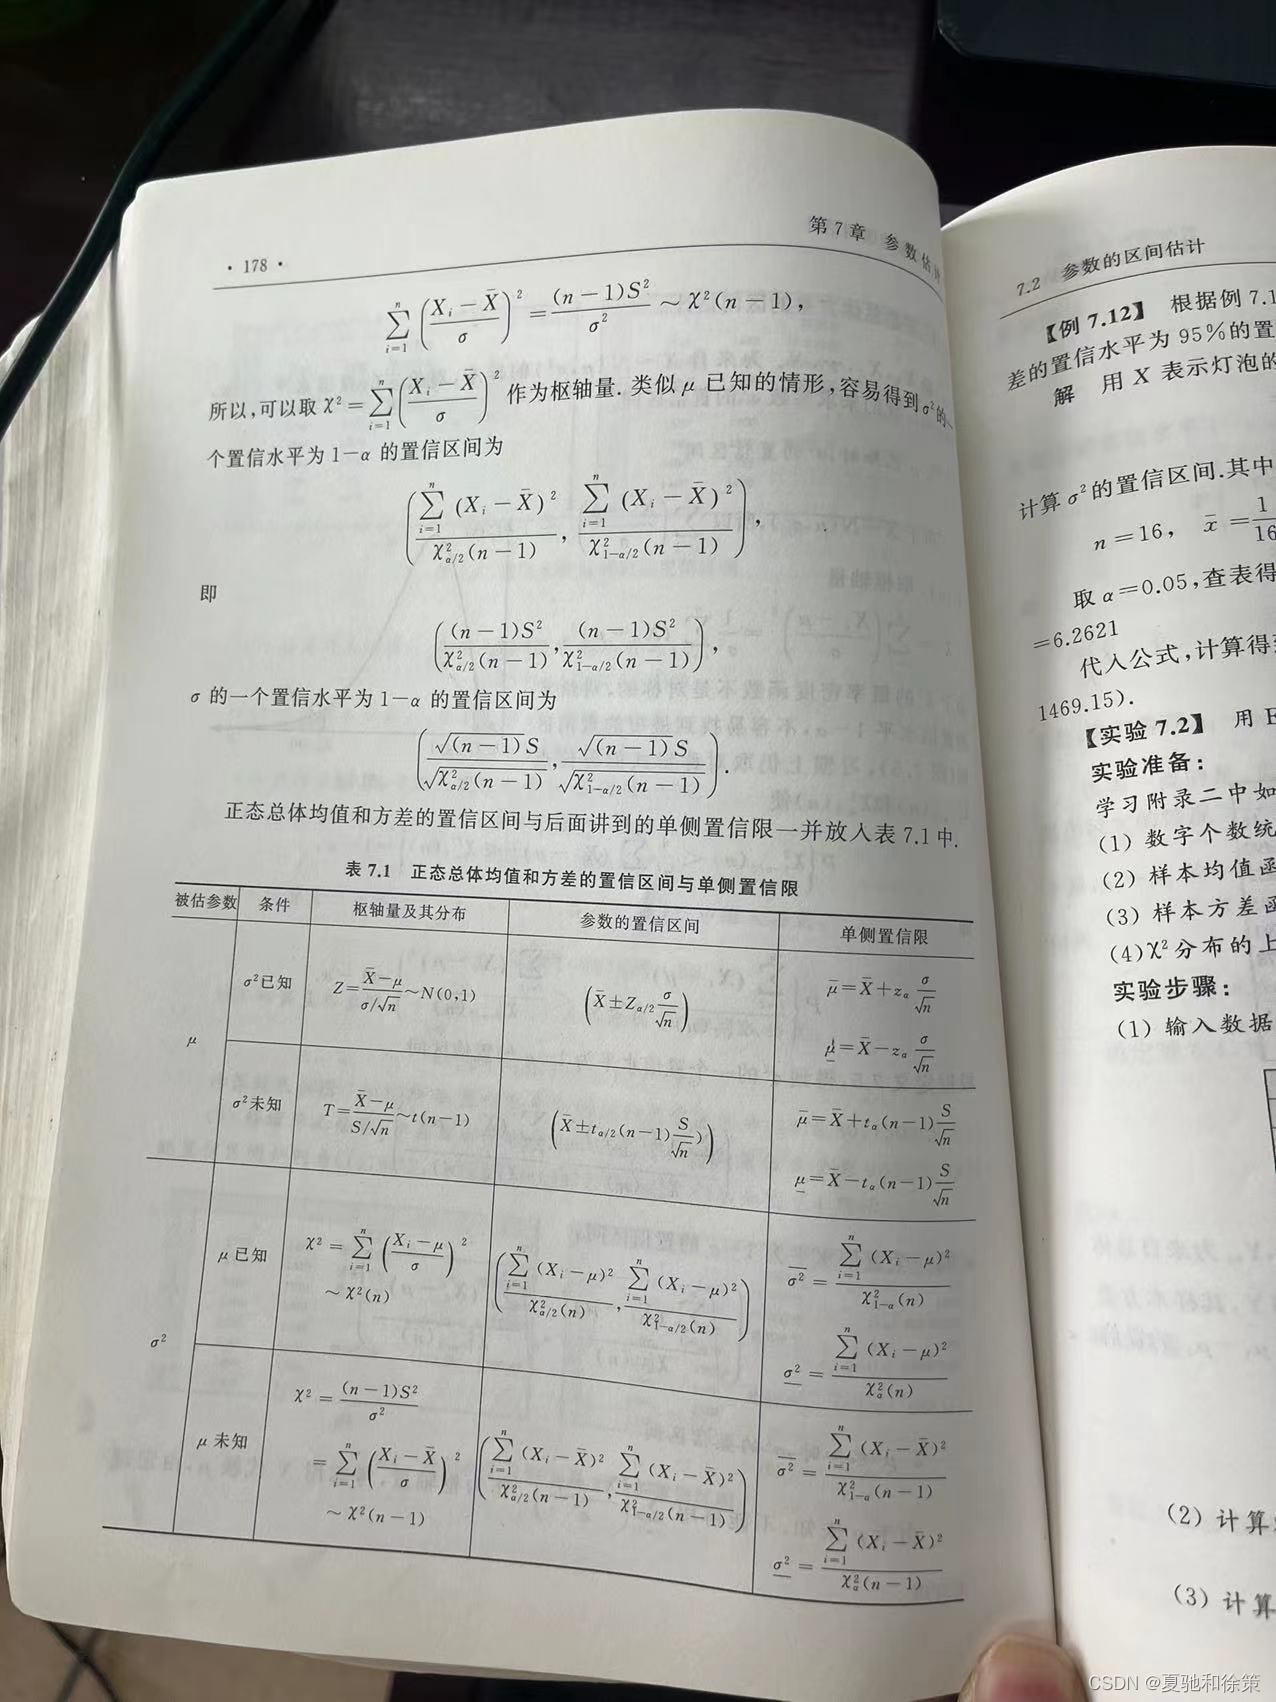 · 178 ·
第7章 参数估
$\sum_{i=1}^{n}\left(\frac{X_i-\bar{X}}{\sigma}\right)^2=\frac{(n-1)S^2}{\sigma^2}\sim\chi^2(n-1),$
所以,可以取 $\chi^2=\sum_{i=1}^{n}\left(\frac{X_i-\bar{X}}{\sigma}\right)^2$ 作为枢轴量. 类似 μ 已知的情形,容易得到 σ² 的一
个置信水平为 1-α 的置信区间为
$\left(\frac{\sum_{i=1}^{n}(X_i-\bar{X})^2}{\chi^2_{\alpha/2}(n-1)},\frac{\sum_{i=1}^{n}(X_i-\bar{X})^2}{\chi^2_{1-\alpha/2}(n-1)}\right),$
即
$\left(\frac{(n-1)S^2}{\chi^2_{\alpha/2}(n-1)},\frac{(n-1)S^2}{\chi^2_{1-\alpha/2}(n-1)}\right),$
σ 的一个置信水平为 1-α 的置信区间为
$\left(\frac{\sqrt{(n-1)}S}{\sqrt{\chi^2_{\alpha/2}(n-1)}},\frac{\sqrt{(n-1)}S}{\sqrt{\chi^2_{1-\alpha/2}(n-1)}}\right).$
正态总体均值和方差的置信区间与后面讲到的单侧置信限一并放入表 7.1 中.
表 7.1 正态总体均值和方差的置信区间与单侧置信限
被估参数 条件 枢轴量及其分布 参数的置信区间 单侧置信限
μ
σ²已知 $Z=\frac{\bar{X}-\mu}{\sigma/\sqrt{n}}\sim N(0,1)$ $\left(\bar{X}\pm Z_{\alpha/2}\frac{\sigma}{\sqrt{n}}\right)$ $\bar{\mu}=\bar{X}+z_{\alpha}\frac{\sigma}{\sqrt{n}}$
$\underline{\mu}=\bar{X}-z_{\alpha}\frac{\sigma}{\sqrt{n}}$
σ²未知 $T=\frac{\bar{X}-\mu}{S/\sqrt{n}}\sim t(n-1)$ $\left(\bar{X}\pm t_{\alpha/2}(n-1)\frac{S}{\sqrt{n}})\right)$ $\bar{\mu}=\bar{X}+t_{\alpha}(n-1)\frac{S}{\sqrt{n}}$
$\underline{\mu}=\bar{X}-t_{\alpha}(n-1)\frac{S}{\sqrt{n}}$
σ²
μ 已知 $\chi^2=\sum_{i=1}^{n}\left(\frac{X_i-\mu}{\sigma}\right)^2$ $\left(\frac{\sum_{i=1}^{n}(X_i-\mu)^2}{\chi^2_{\alpha/2}(n)},\frac{\sum_{i=1}^{n}(X_i-\mu)^2}{\chi^2_{1-\alpha/2}(n)}\right)$ $\overline{\sigma^2}=\frac{\sum_{i=1}^{n}(X_i-\mu)^2}{\chi^2_{1-\alpha}(n)}$
$\sim\chi^2(n)$ $\underline{\sigma^2}=\frac{\sum_{i=1}^{n}(X_i-\mu)^2}{\chi^2_{\alpha}(n)}$
μ 未知 $\chi^2=\frac{(n-1)S^2}{\sigma^2}$
$=\sum_{i=1}^{n}\left(\frac{X_i-\bar{X}}{\sigma}\right)^2$ $\left(\frac{\sum_{i=1}^{n}(X_i-\bar{X})^2}{\chi^2_{\alpha/2}(n-1)},\frac{\sum_{i=1}^{n}(X_i-\bar{X})^2}{\chi^2_{1-\alpha/2}(n-1)}\right)$ $\overline{\sigma^2}=\frac{\sum_{i=1}^{n}(X_i-\bar{X})^2}{\chi^2_{1-\alpha}(n-1)}$
$\sim\chi^2(n-1)$ $\underline{\sigma^2}=\frac{\sum_{i=1}^{n}(X_i-\bar{X})^2}{\chi^2_{\alpha}(n-1)}$
7.2 参数的区间估计
【例 7.12】 根据例 7.1
差的置信水平为 95%的置
解 用 X 表示灯泡的
计算 σ² 的置信区间.其中
$n=16,\quad \bar{x}=\frac{1}{16}$
取 α=0.05,查表得
=6.2621
代入公式,计算得
1469.15).
【实验 7.2】 用 E
实验准备:
学习附录二中如
(1) 数字个数统
(2) 样本均值函
(3) 样本方差函
(4) χ² 分布的上
实验步骤:
(1) 输入数据
(2) 计算
(3) 计算
CSDN @夏驰和徐策